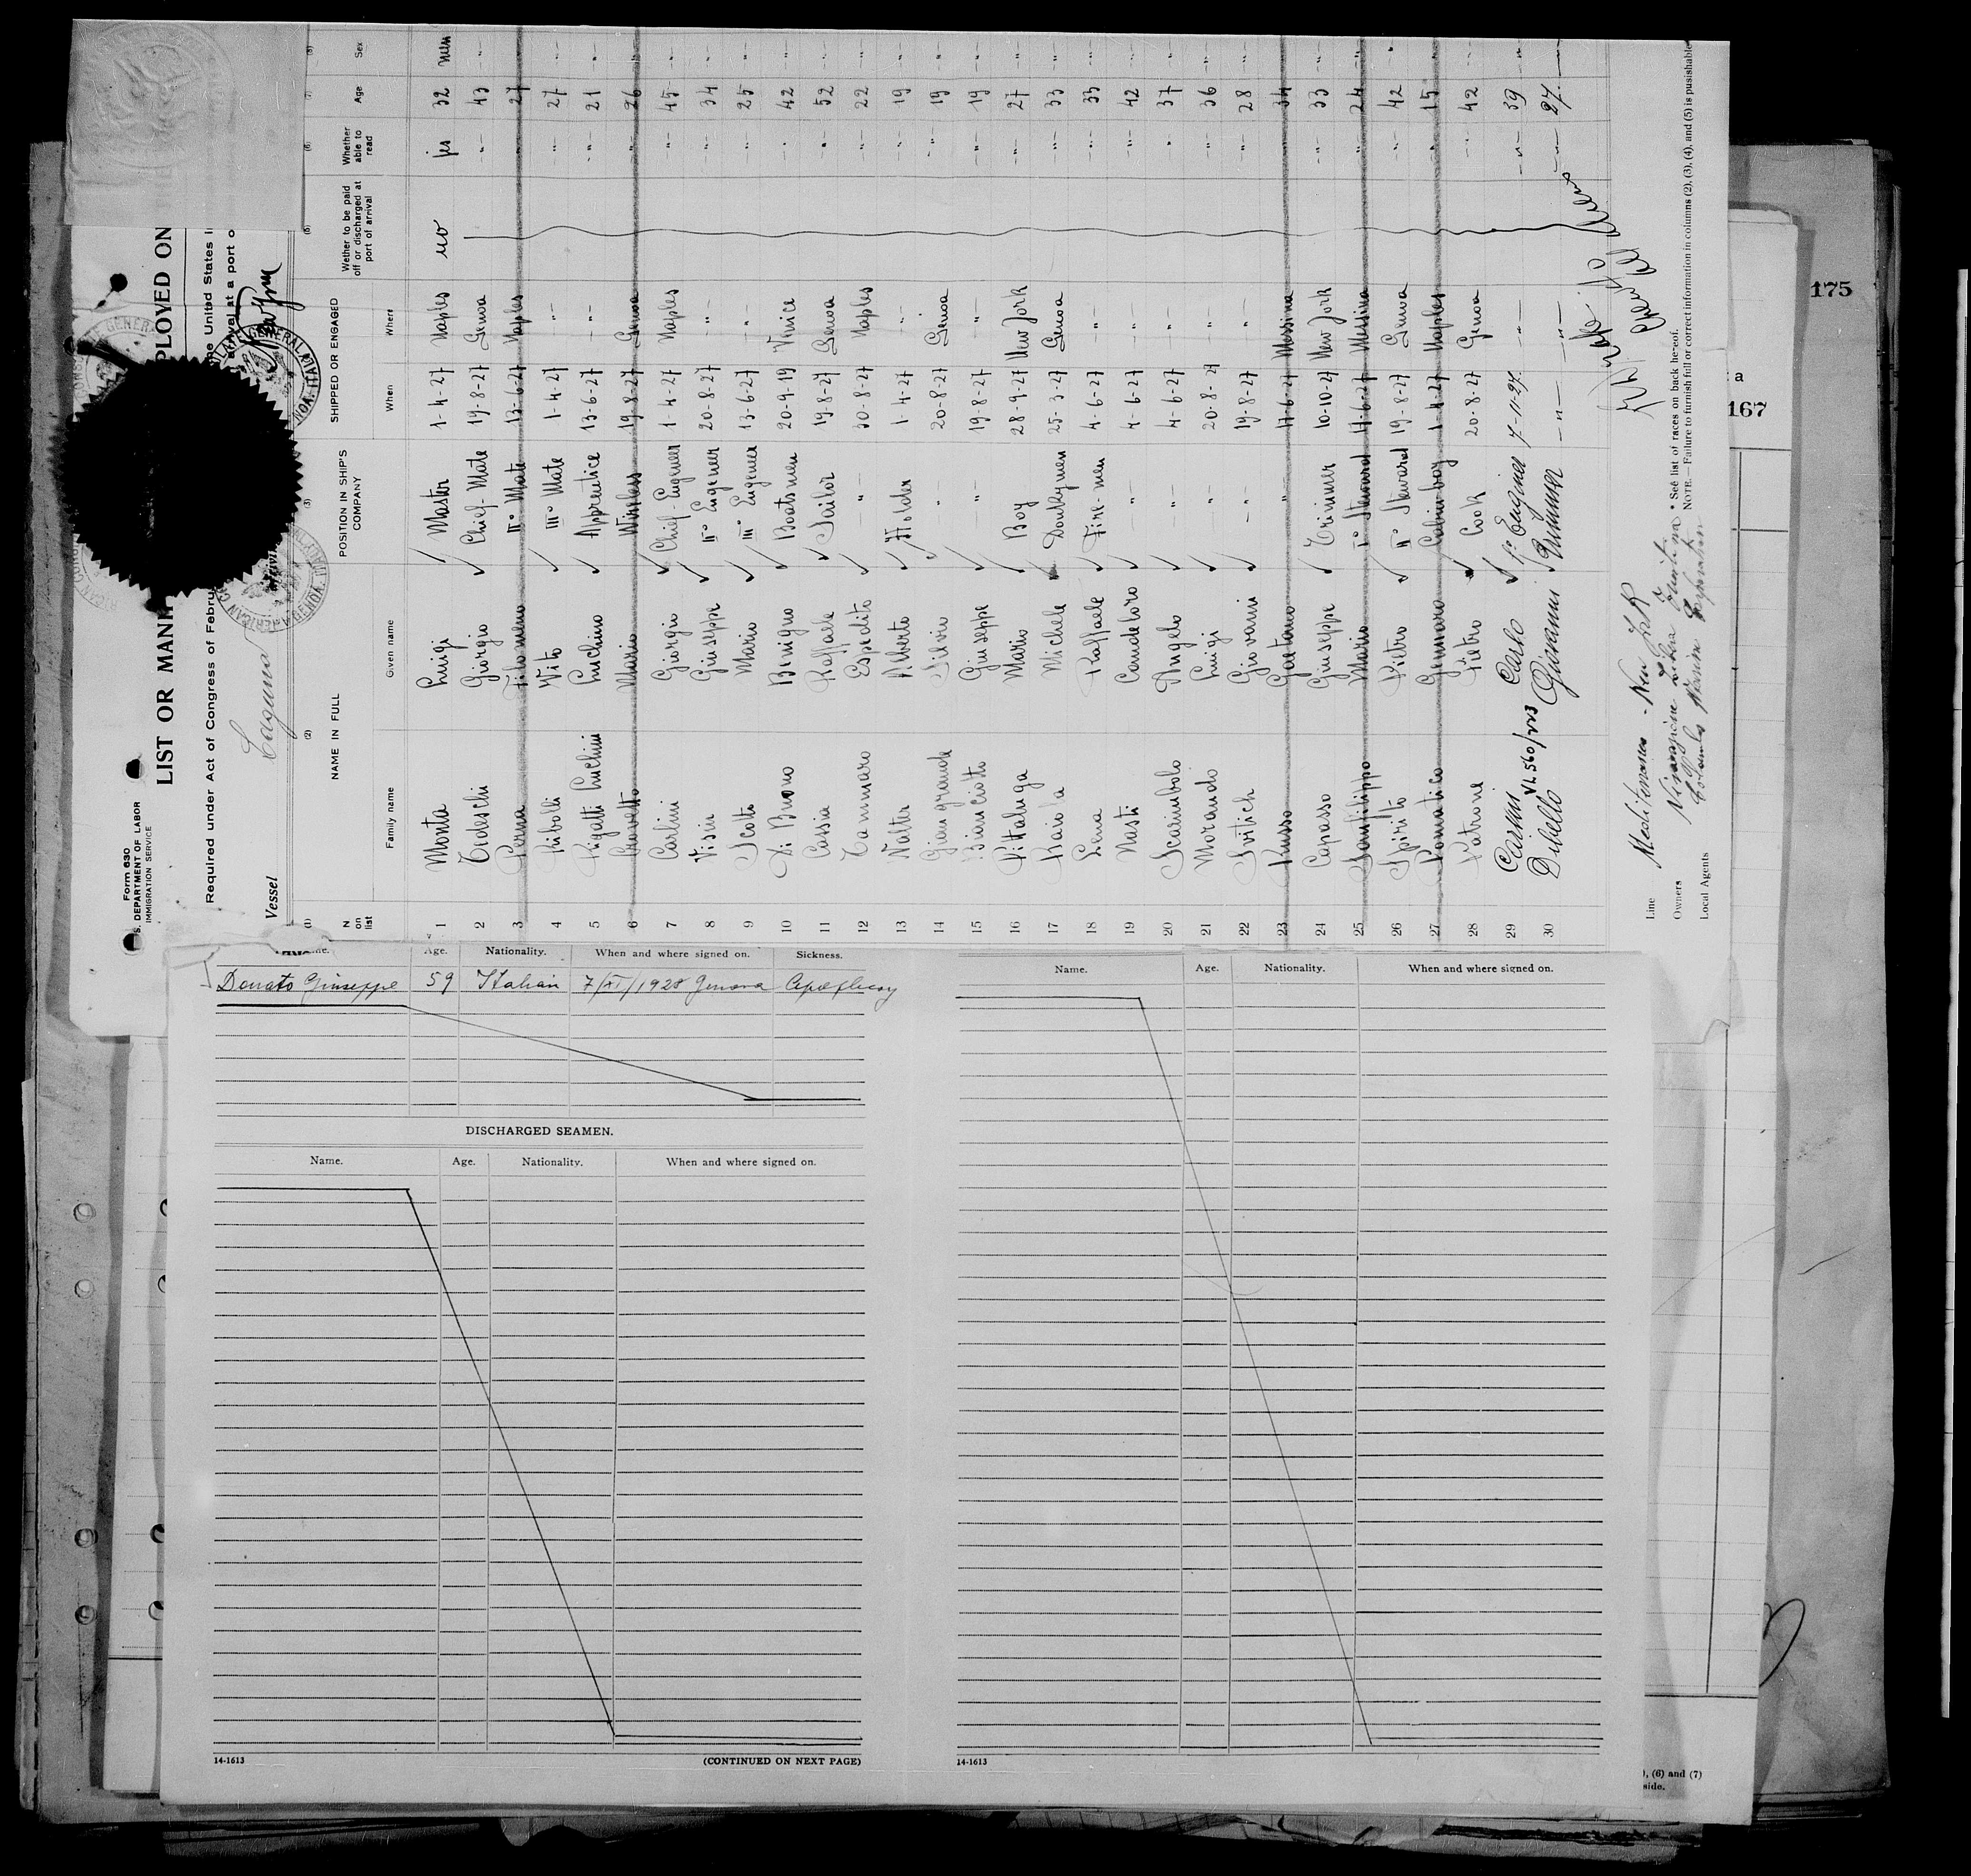 Form 630
S. DEPARTMENT OF LABOR
IMMIGRATION SERVICE
LIST OR MANI
PLOYED ON
Required under Act of Congress of Febru
he United States I
arrival at a port o
Vessel
(1) (2) (3) (5) (6) (7) (8)
N on list NAME IN FULL POSITION IN SHIP'S COMPANY SHIPPED OR ENGAGED Wether to be paid off or discharged at port of arrival Whether able to read Age Sex
Family name Given name When Where
1 Monta Luigi Master 1-4-27 Naples no yes 32 men
2 Tedeschi Giorgio Chief-Mate 19-8-27 Genoa -"- 43 -"-
3 Perna Filomeno II° Mate 13-6-27 Naples 27
4 Riboldi Vito III° Mate 1-4-27 -"- -"- 27 -"-
5 Rigatti Luchini Luchino Apprentice 13-6-27 -"- -"- 21 -"-
6 Mario Wireless 19-8-27 Genoa -"- 26 -"-
7 Carlini Giorgio Chief-Engeneer 1-4-27 Naples -"- 45 -"-
8 Visin Giuseppe II° Engeneer 20-8-27 -"- -"- 34 -"-
9 Scotto Mario III° Engeneer 13-6-27 -"- -"- 25 -"-
10 Di Buono Benigno Boatsmen 20-9-19 Venice -"- 42 -"-
11 Cassia Raffaele Sailor 19-8-27 Genoa -"- 52 -"-
12 Tammaro Espedito -"- 30-8-27 Naples -"- 22 -"-
13 Walter Alberto Holder 1-4-27 -"- -"- 19 -"-
14 Giangrande Silvio -"- 20-8-27 Genoa -"- 19 -"-
15 Bianciotto Giuseppe -"- 19-8-27 -"- -"- 19 -"-
16 Pittaluga Mario Boy 28-9-27 New York -"- 27 -"-
17 Raiola Michele Donkymen 25-3-27 Genoa -"- 33 -"-
18 Lena Raffaele Fire-men 4-6-27 -"- -"- 33 -"-
19 Nasti Candeloro -"- 4-6-27 -"- -"- 42 -"-
20 Scaimbolo Angelo -"- 4-6-27 -"- -"- 37 -"-
21 Morando Luigi -"- 20-8-27 -"- -"- 36 -"-
22 Svitich Giovanni -"- 19-8-27 -"- -"- 28 -"-
23 Russo Gaetano -"- 17-6-27 Messina 34 -"-
24 Capasso Giuseppe Trimmer 10-10-27 New York -"- 33 -"-
25 Sanfilippo Mario I° Steward 17-6-27 Messina -"- 24 -"-
26 Spirito Pietro II° Steward 19-8-27 Genoa -"- 42 -"-
27 Pomatico Gennaro Cabin boy 1-4-27 Naples -"- 15 -"-
28 Patrone Pietro Cook 20-8-27 Genoa -"- 42 -"-
29 Carlo 1° Enginer 7-11-27 -"- -"- 39 -"-
30 Dibello Trimmer -"- -"- -"- 27
Line Mediterraneo - New York
Owners
Local Agents
* See list of races on back hereof.
NOTE.—Failure to furnish full or correct information in columns (2), (3), (4), and (5) is punishable
175
167
a
Age. Nationality. When and where signed on. Sickness.
Donato Giuseppe 59 Italian 7/XI/1928 Genova Apoplessy
DISCHARGED SEAMEN.
Name. Age. Nationality. When and where signed on.
14-1613 (CONTINUED ON NEXT PAGE)
Name. Age. Nationality. When and where signed on.
14-1613
), (6) and (7)
side.